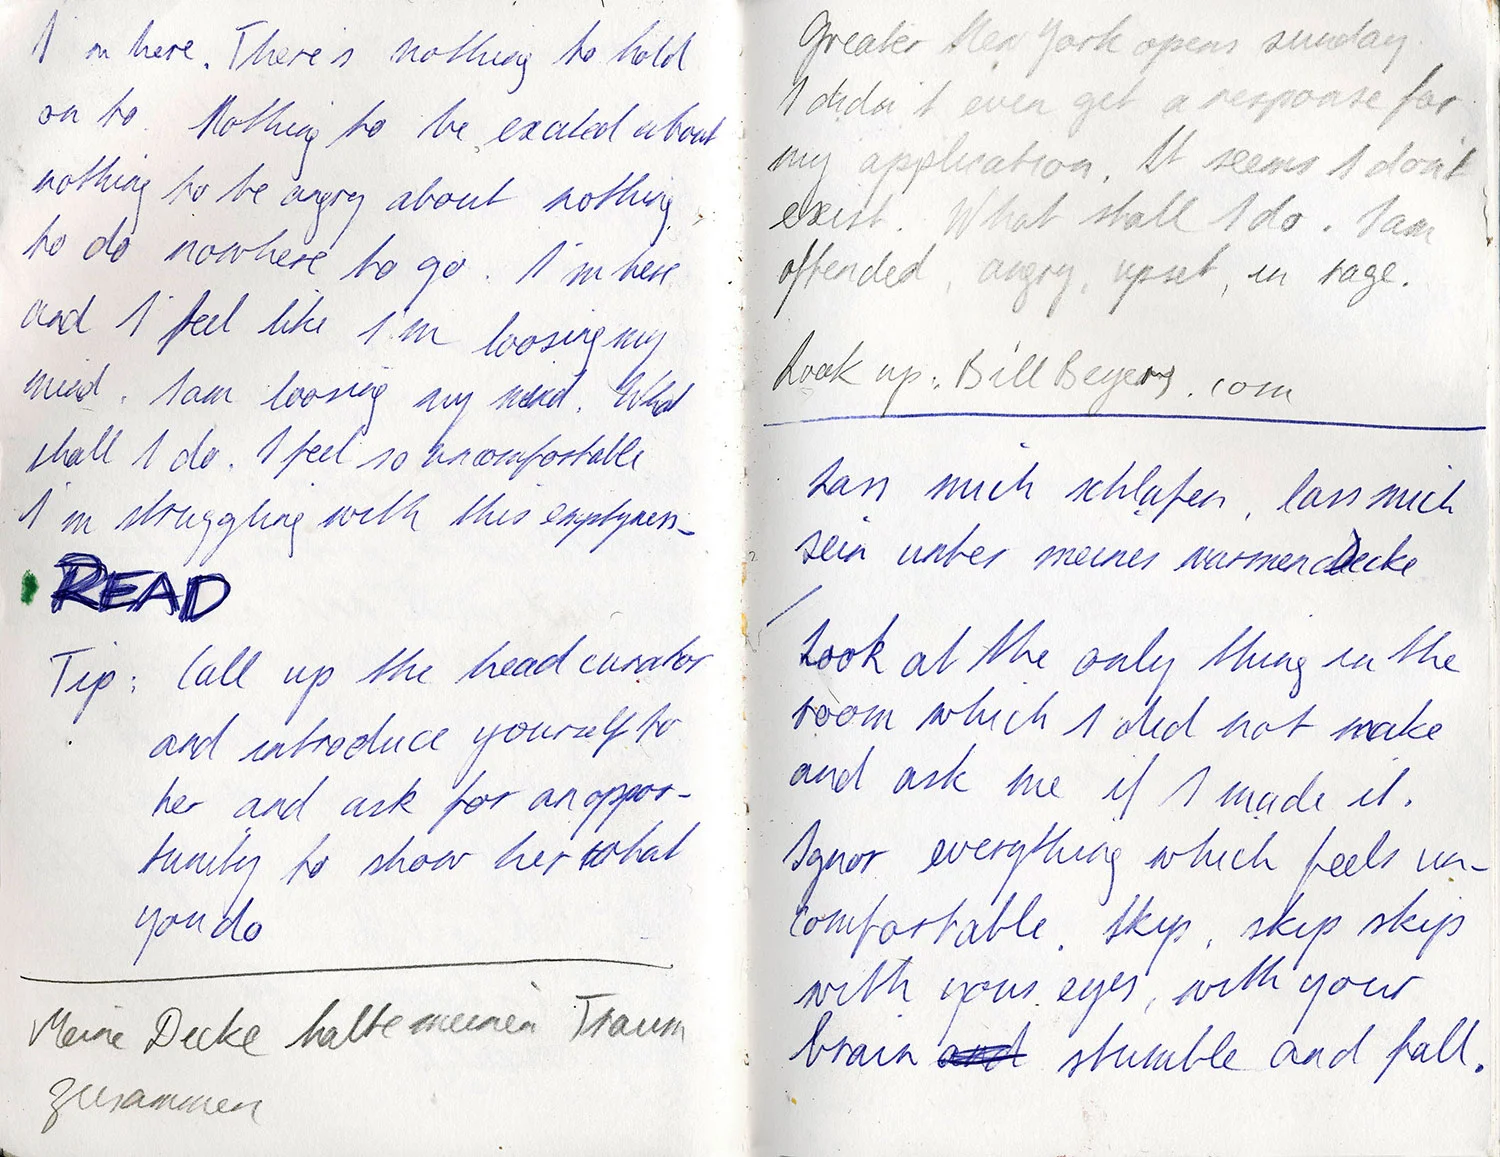 I'm here. There's nothing to hold
on to. Nothing to be excited about
nothing to be angry about nothing
to do nowhere to go. I'm here
and I feel like I'm loosing my
mind. I am loosing my mind. What
shall I do. I feel so uncomfortable
I'm struggling with this emptyness
READ
Tip: Call up the head curator
and introduce yourself to
her and ask for an oppor-
tunity to show her what
you do
Meine Decke halte meinen Traum
zusammen
Greater New York opens sunday.
I didn't even get a response for
my application. It seems I don't
exist. What shall I do. I am
offended, angry, upset, in rage.
Look up: Bill .com
Lass mich schlafen, lass mich
sein unter meiner warmen Decke
Look at the only thing in the
room which I did not make
and ask me if I made it.
Ignor everything which feels un-
comfortable. Skip, skip skip
with your eyes, with your
brain and stumble and fall.